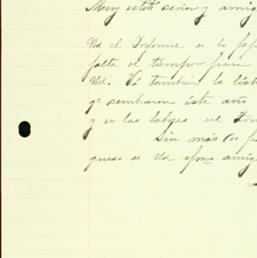 Muy estdo señor y amig
Ud el Informe se lo
falta el tiempo para
Ud. Vá también la list
qe sembraron éste año
y en las labores del
Sin más
quedo de Ud afmo amig